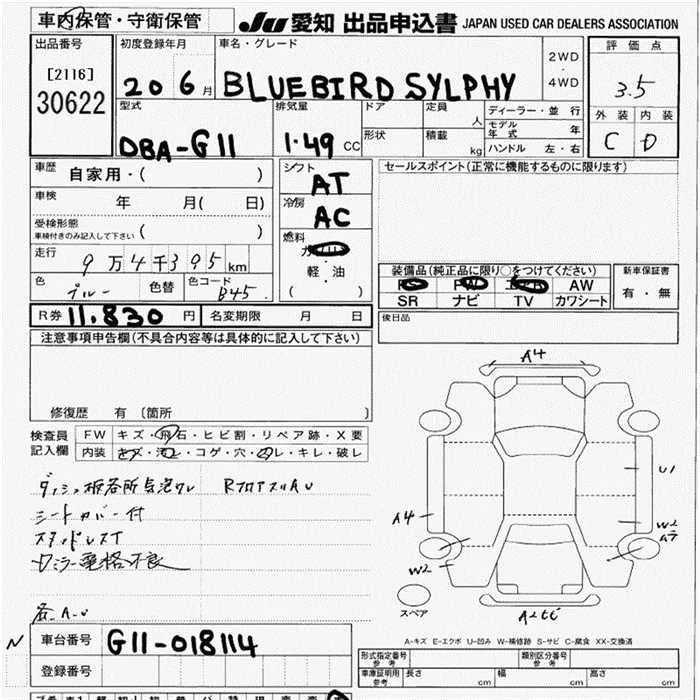 車内保管・守衛保管
JU 愛知 出品申込書 JAPAN USED CAR DEALERS ASSOCIATION
出品番号
[2116]
30622
初度登録年月
20 6月
車名・グレード
BLUEBIRD SYLPHY
2WD
・
4WD
評価点
3.5
外装 内装
C D
型式
DBA-G11
排気量
1.49 CC
ドア
形状
定員
人
積載
kg
ディーラー・並行
モデル年式 年
ハンドル 左・右
車歴
自家用・( )
車検
年 月( 日)
受検形態
車検付きのみ記入して下さい ( )
走行
9万4千395km
色
ブルー
色替
色コード
B45
シフト
AT
冷房
AC
燃料
ガソリン
・
軽・油
( )
セールスポイント(正常に機能するものに限ります)
装備品(純正品に限り○をつけてください)
PS PW エアB AW
SR ナビ TV カワシート
新車保証書
有・無
後日品
R券 11.830 円 名変期限 月 日
注意事項申告欄(不具合内容等は具体的に記入して下さい)
修復歴 有 〔箇所 〕
検査員
記入欄
FW キズ・飛石・ヒビ割・リペア跡・X要
内装 キズ・汚レ・コゲ・穴・スレ・キレ・破レ
シートカバー付
A4
U1
A4
W2
W2
A2
スペア
A-キズ E-エクボ U-凹み W-補修跡 S-サビ C-腐食 XX-交換済
N
車台番号 G11-018114
登録番号
形式指定番号
参考
類別区分番号
参考
車庫証明用
参考
長さ cm 幅 cm 高さ cm